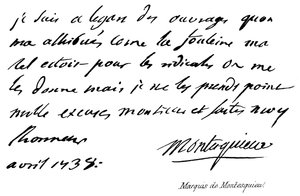 je suis a legard des ouvrages quon
ma attribués come la fonteine ma
tel estoit pour les ridicules on me
les donne mais je ne les prends point
mille excuses monsieur et faites moy
lhonneur
Montesquieu
avril 1738.
Marquis de Montesquieu